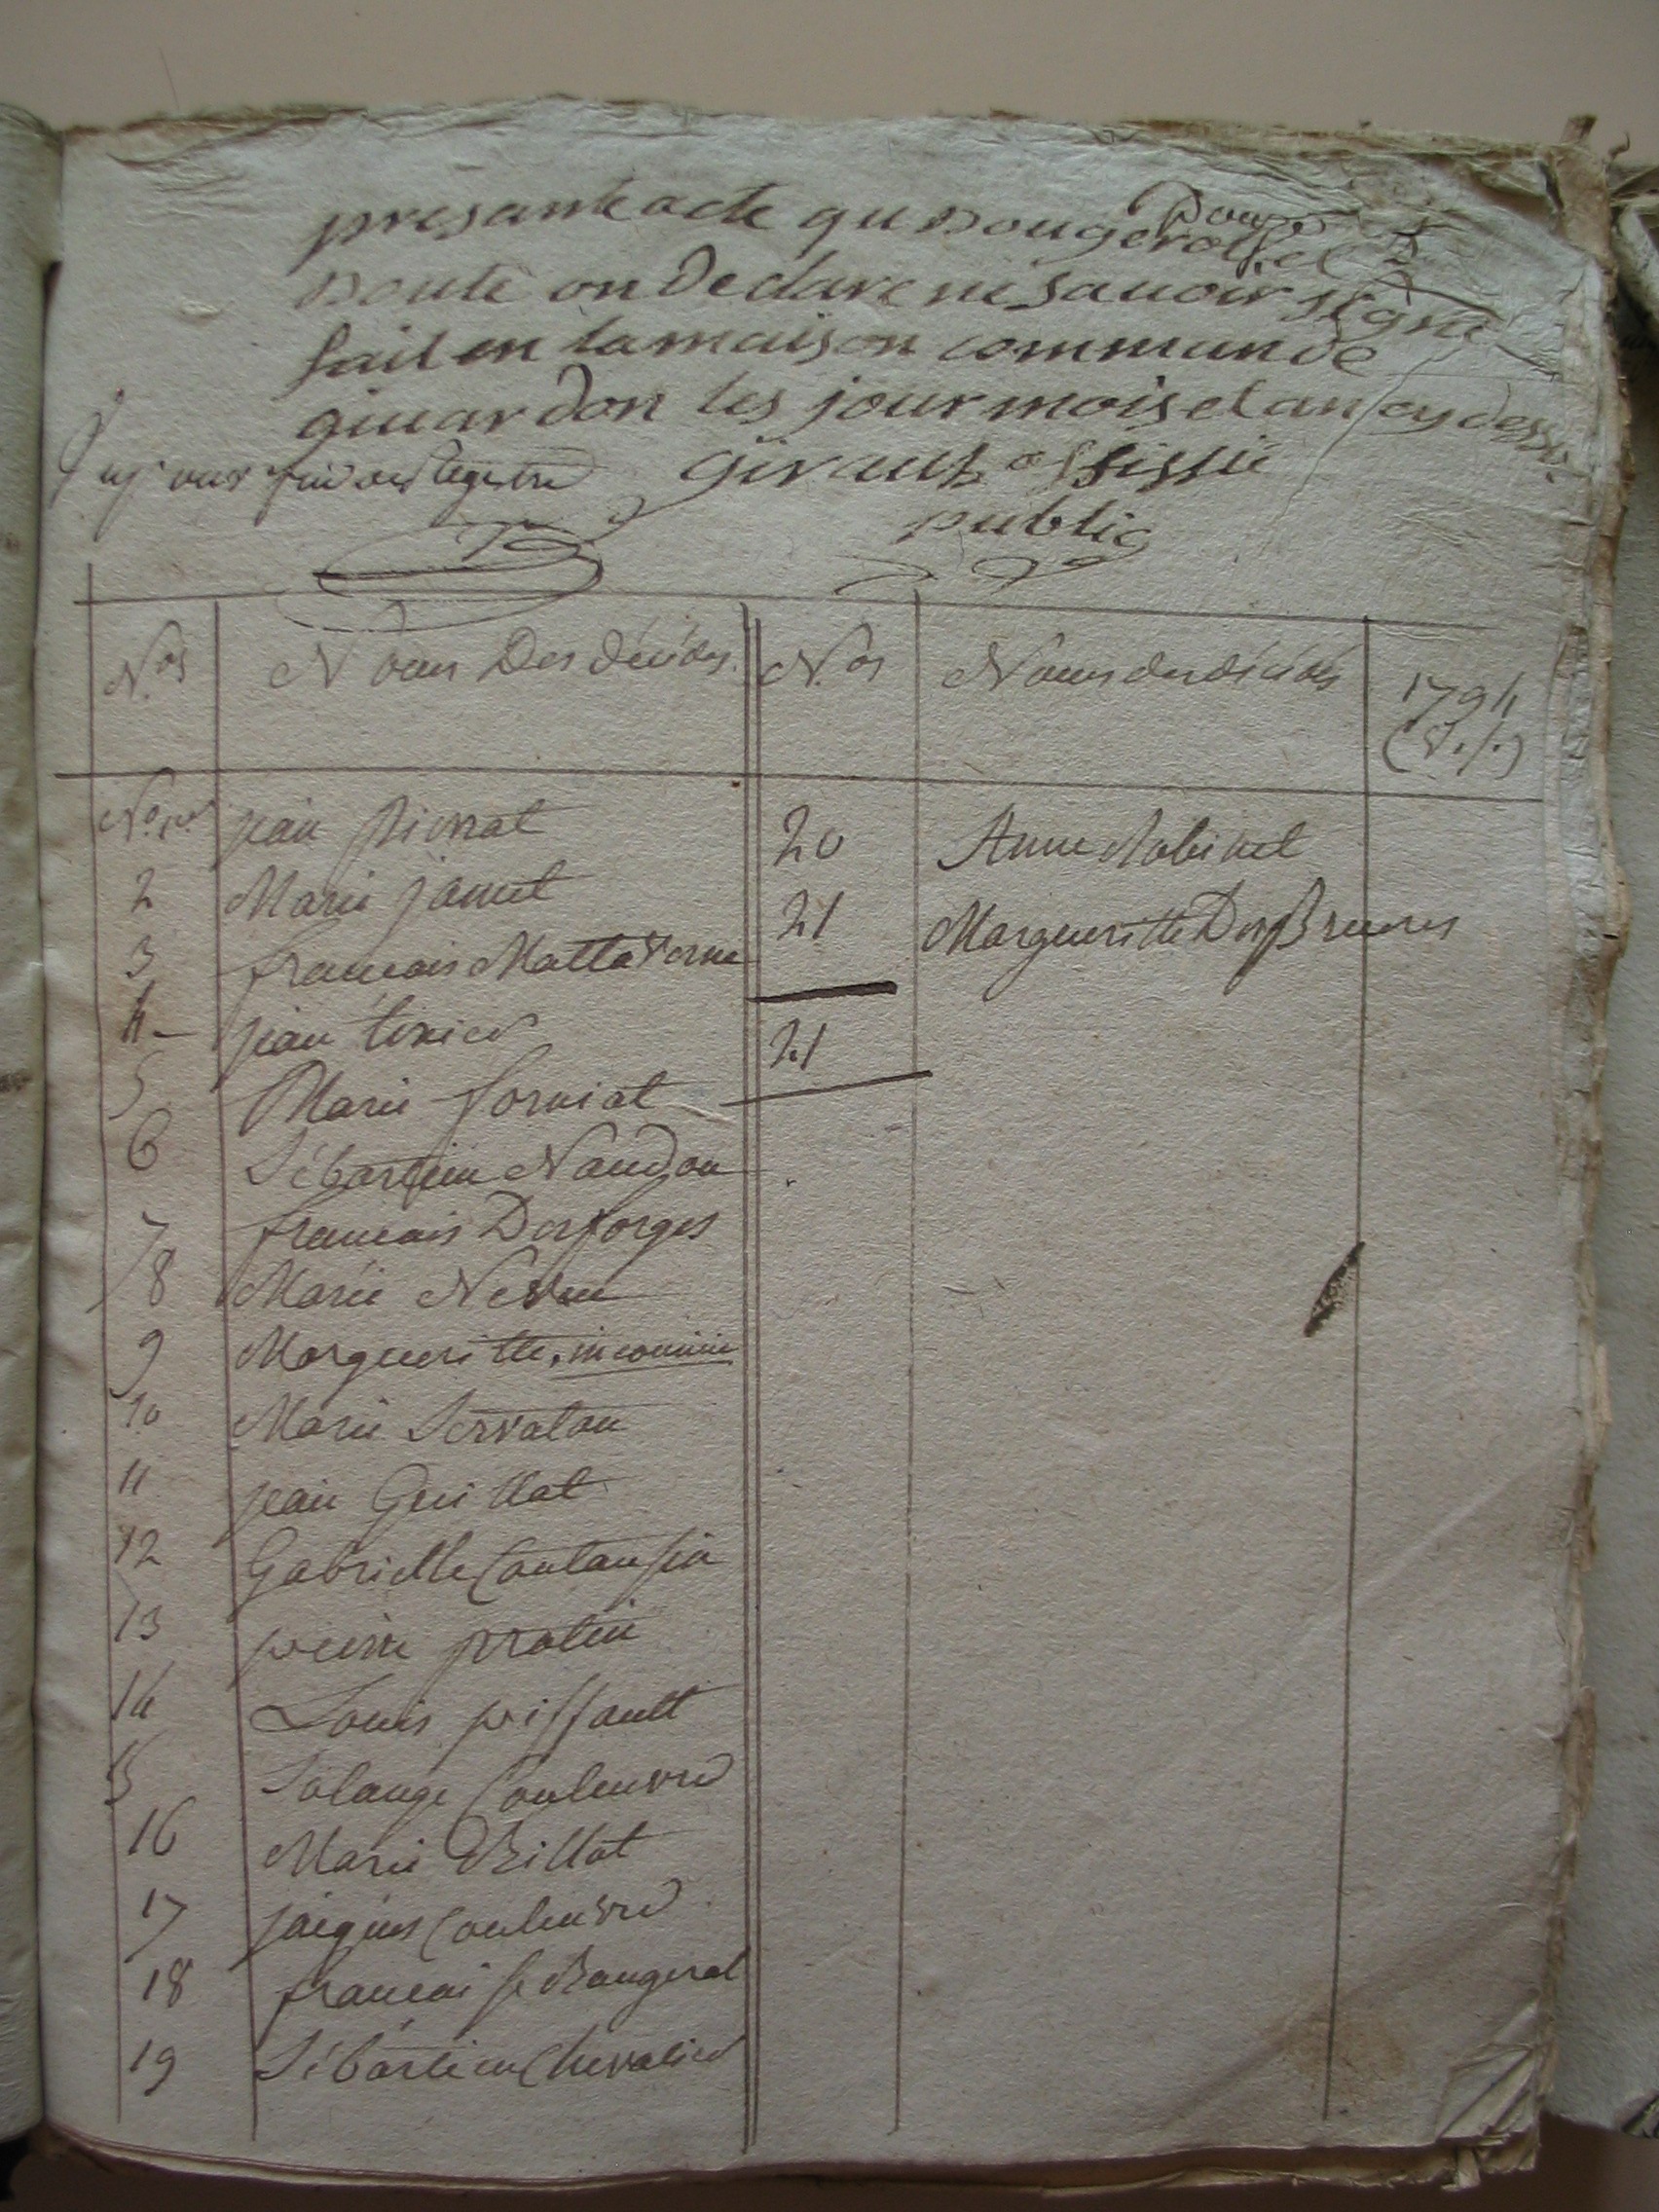 presante acte qu Dougerolle et
Doute on declare ne savoir signé
fait en la maison commune de
givardon les jour mois et an cy dessu
girault offissié
public
N.os Noms Des décédés N.os Noms des décédés 1794
N.o 1.er jean pierrat 20 Anne Robinet
2 Marie jamet 21 Margueritte DesBrueres
3 francois Mattaverne
4 jean texier 21
5 Marie forniat
6 Sébastien Naudon
7 francois Desforges
8 Marie Neveu
9 Margueritte inconnue
10 Marie Servatou
11 jean Guillat
12 Gabrielle Coutansin
13 pierre pratin
14 Louis piffault
15 Solange Couleuvre
16 Marie Billot
17 jacques Couleuvre
18 francoise Baugerat
19 Sébastien Chevalier